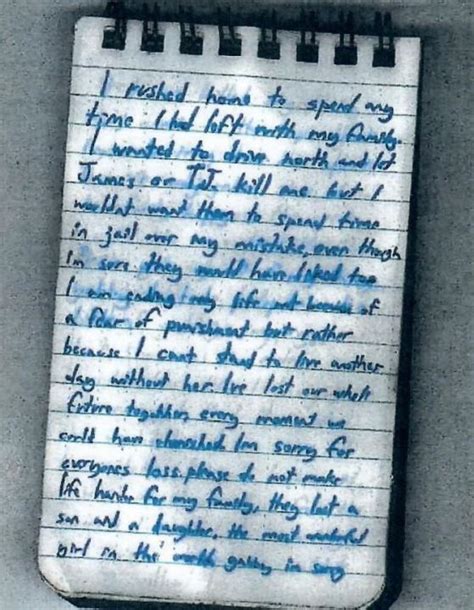 I rushed home to spend any
time I had left with my family.
I wanted to drive north and let
James or T.J. kill me but I
wouldnt want them to spend time
in jail over my mistake, even though
Im sure they would have liked too
I am ending my life not because of
a fear of punishment but rather
because I cant stand to live another
day without her. Ive lost our whole
future together, every moment we
could have cherished Im sorry for
everyones loss. please do not make
life harder for my family, they lost a
son and a daughter. the most wonderful
girl in the world gabby im sorry